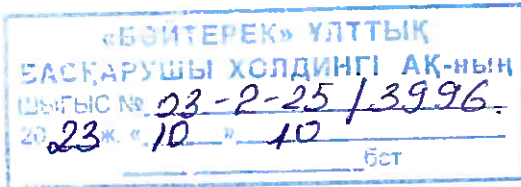 «БӘЙТЕРЕК» ҰЛТТЫҚ
БАСҚАРУШЫ ХОЛДИНГІ АҚ-ның
ШЫҒЫС № 03-2-25/3996.
20 23 ж. « 10 » 10
бет